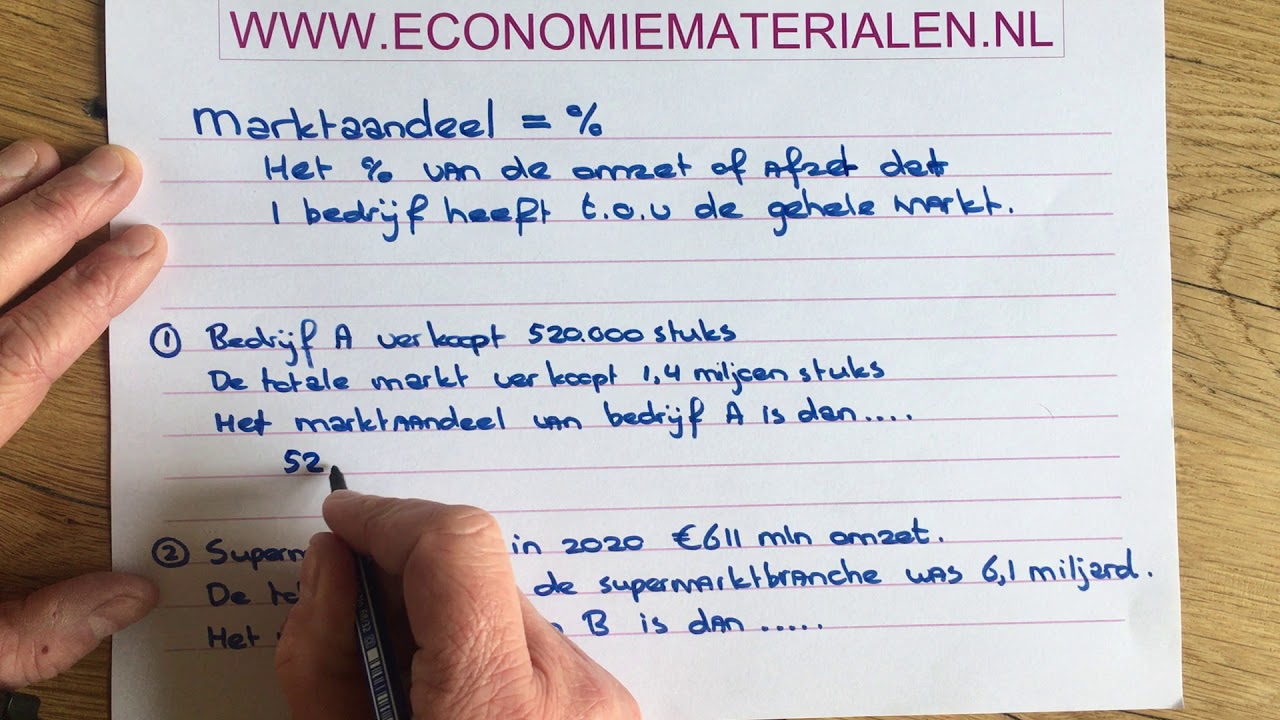 WWW.ECONOMIEMATERIALEN.NL
Marktaandeel = %
Het % van de omzet of Afzet dat
1 bedrijf heeft t.o.v de gehele markt.
① Bedrijf A verkoopt 520.000 stuks
De totale markt verkoopt 1,4 miljoen stuks
Het marktaandeel van bedrijf A is dan....
52
② in 2020 €611 mln omzet.
De de supermarktbranche was 6,1 miljard.
Het B is dan .....